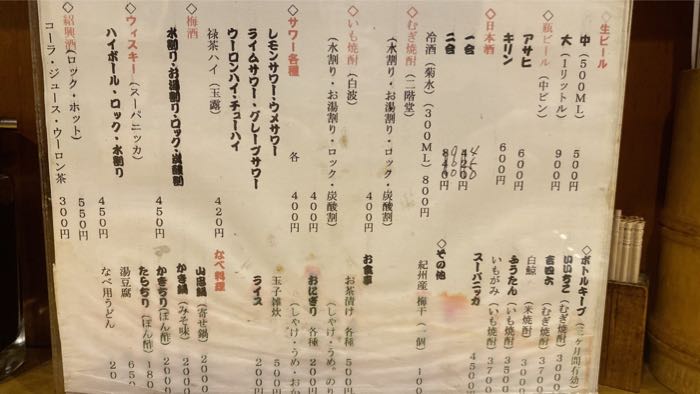 ◇生ビール
中(500ML) 500円
大(1リットル) 900円
◇瓶ビール(中ビン)
アサヒ 600円
キリン 600円
◇日本酒
一合 450
二合
冷酒(菊水)(300ML) 800円
◇むぎ焼酎(二階堂)
(水割り・お湯割り・ロック・炭酸割) 400円
◇いも焼酎(白波)
(水割り・お湯割り・ロック・炭酸割) 400円
◇サワー各種 各 400円
レモンサワー・ウメサワー
ライムサワー・グレープサワー
ウーロンハイ・チューハイ
緑茶ハイ(玉露) 420円
◇梅酒
水割り・お湯割り・ロック・炭酸割 450円
◇ウィスキー(スーパニッカ)
ハイボール・ロック・水割り 450円
◇紹興酒(ロック・ホット) 550円
コーラ・ジュース・ウーロン茶 300円
◇ボトルキープ(三ヶ月間有効)
いいちこ(むぎ焼酎) 3000
吉四六(むぎ焼酎) 3700
白鯨(米焼酎) 3000
ふうたん(いも焼酎) 3500
いもがみ(いも焼酎) 3700
スーパニッカ 4500
◇その他
紀州産 梅干(一個) 100
お食事
お茶漬け 各種 500円
(しゃけ・うめ・のり
おにぎり 各種 200円
(しゃけ・うめ・おか
玉子雑炊 500円
ライス 200
なべ料理
山忠鍋(寄せ鍋) 2000
かき鍋(みそ味) 2000
かきちり(ぽん酢) 2000
たらちり(ぽん酢) 180
湯豆腐 650
なべ用うどん 20